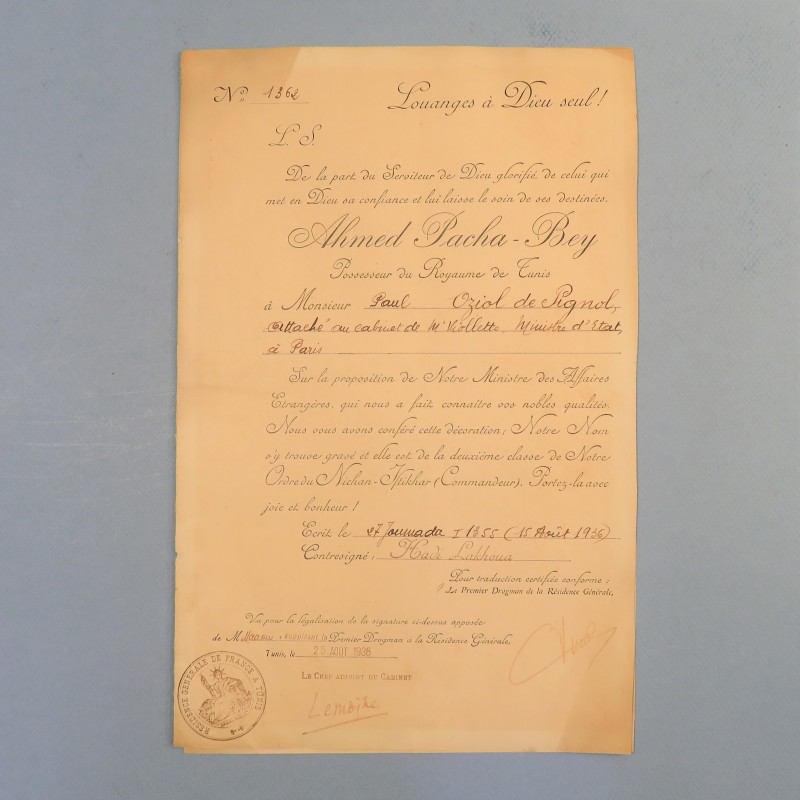 No 1362
Louanges à Dieu seul !
L. S.
De la part du Serviteur de Dieu glorifié, de celui qui
met en Dieu sa confiance et lui laisse le soin de ses destinées,
Ahmed Pacha-Bey
Possesseur du Royaume de Tunis
à Monsieur Paul Oziol de Pignol,
Attaché au cabinet de Mr Viollette, Ministre d'Etat,
à Paris
Sur la proposition de Notre Ministre des Affaires
Etrangères, qui nous a fait connaître vos nobles qualités,
Nous vous avons conféré cette décoration; Notre Nom
s'y trouve gravé et elle est de la deuxième classe de Notre
Ordre du Nichan-Iftikhar (Commandeur). Portez-la avec
joie et bonheur !
Ecrit le 27 Joumada I 1355 (15 Août 1936)
Contresigné : Hadi Lakhoua
Pour traduction certifiée conforme :
Le Premier Drogman de la Résidence Générale,
Vu pour la légalisation de la signature ci-dessus apposée
de M. Premier Drogman à la Résidence Générale,
Tunis, le 25 AOUT 1936
LE CHEF ADJOINT DU CABINET
Lemoine
RÉSIDENCE GÉNÉRALE DE FRANCE A TUNIS